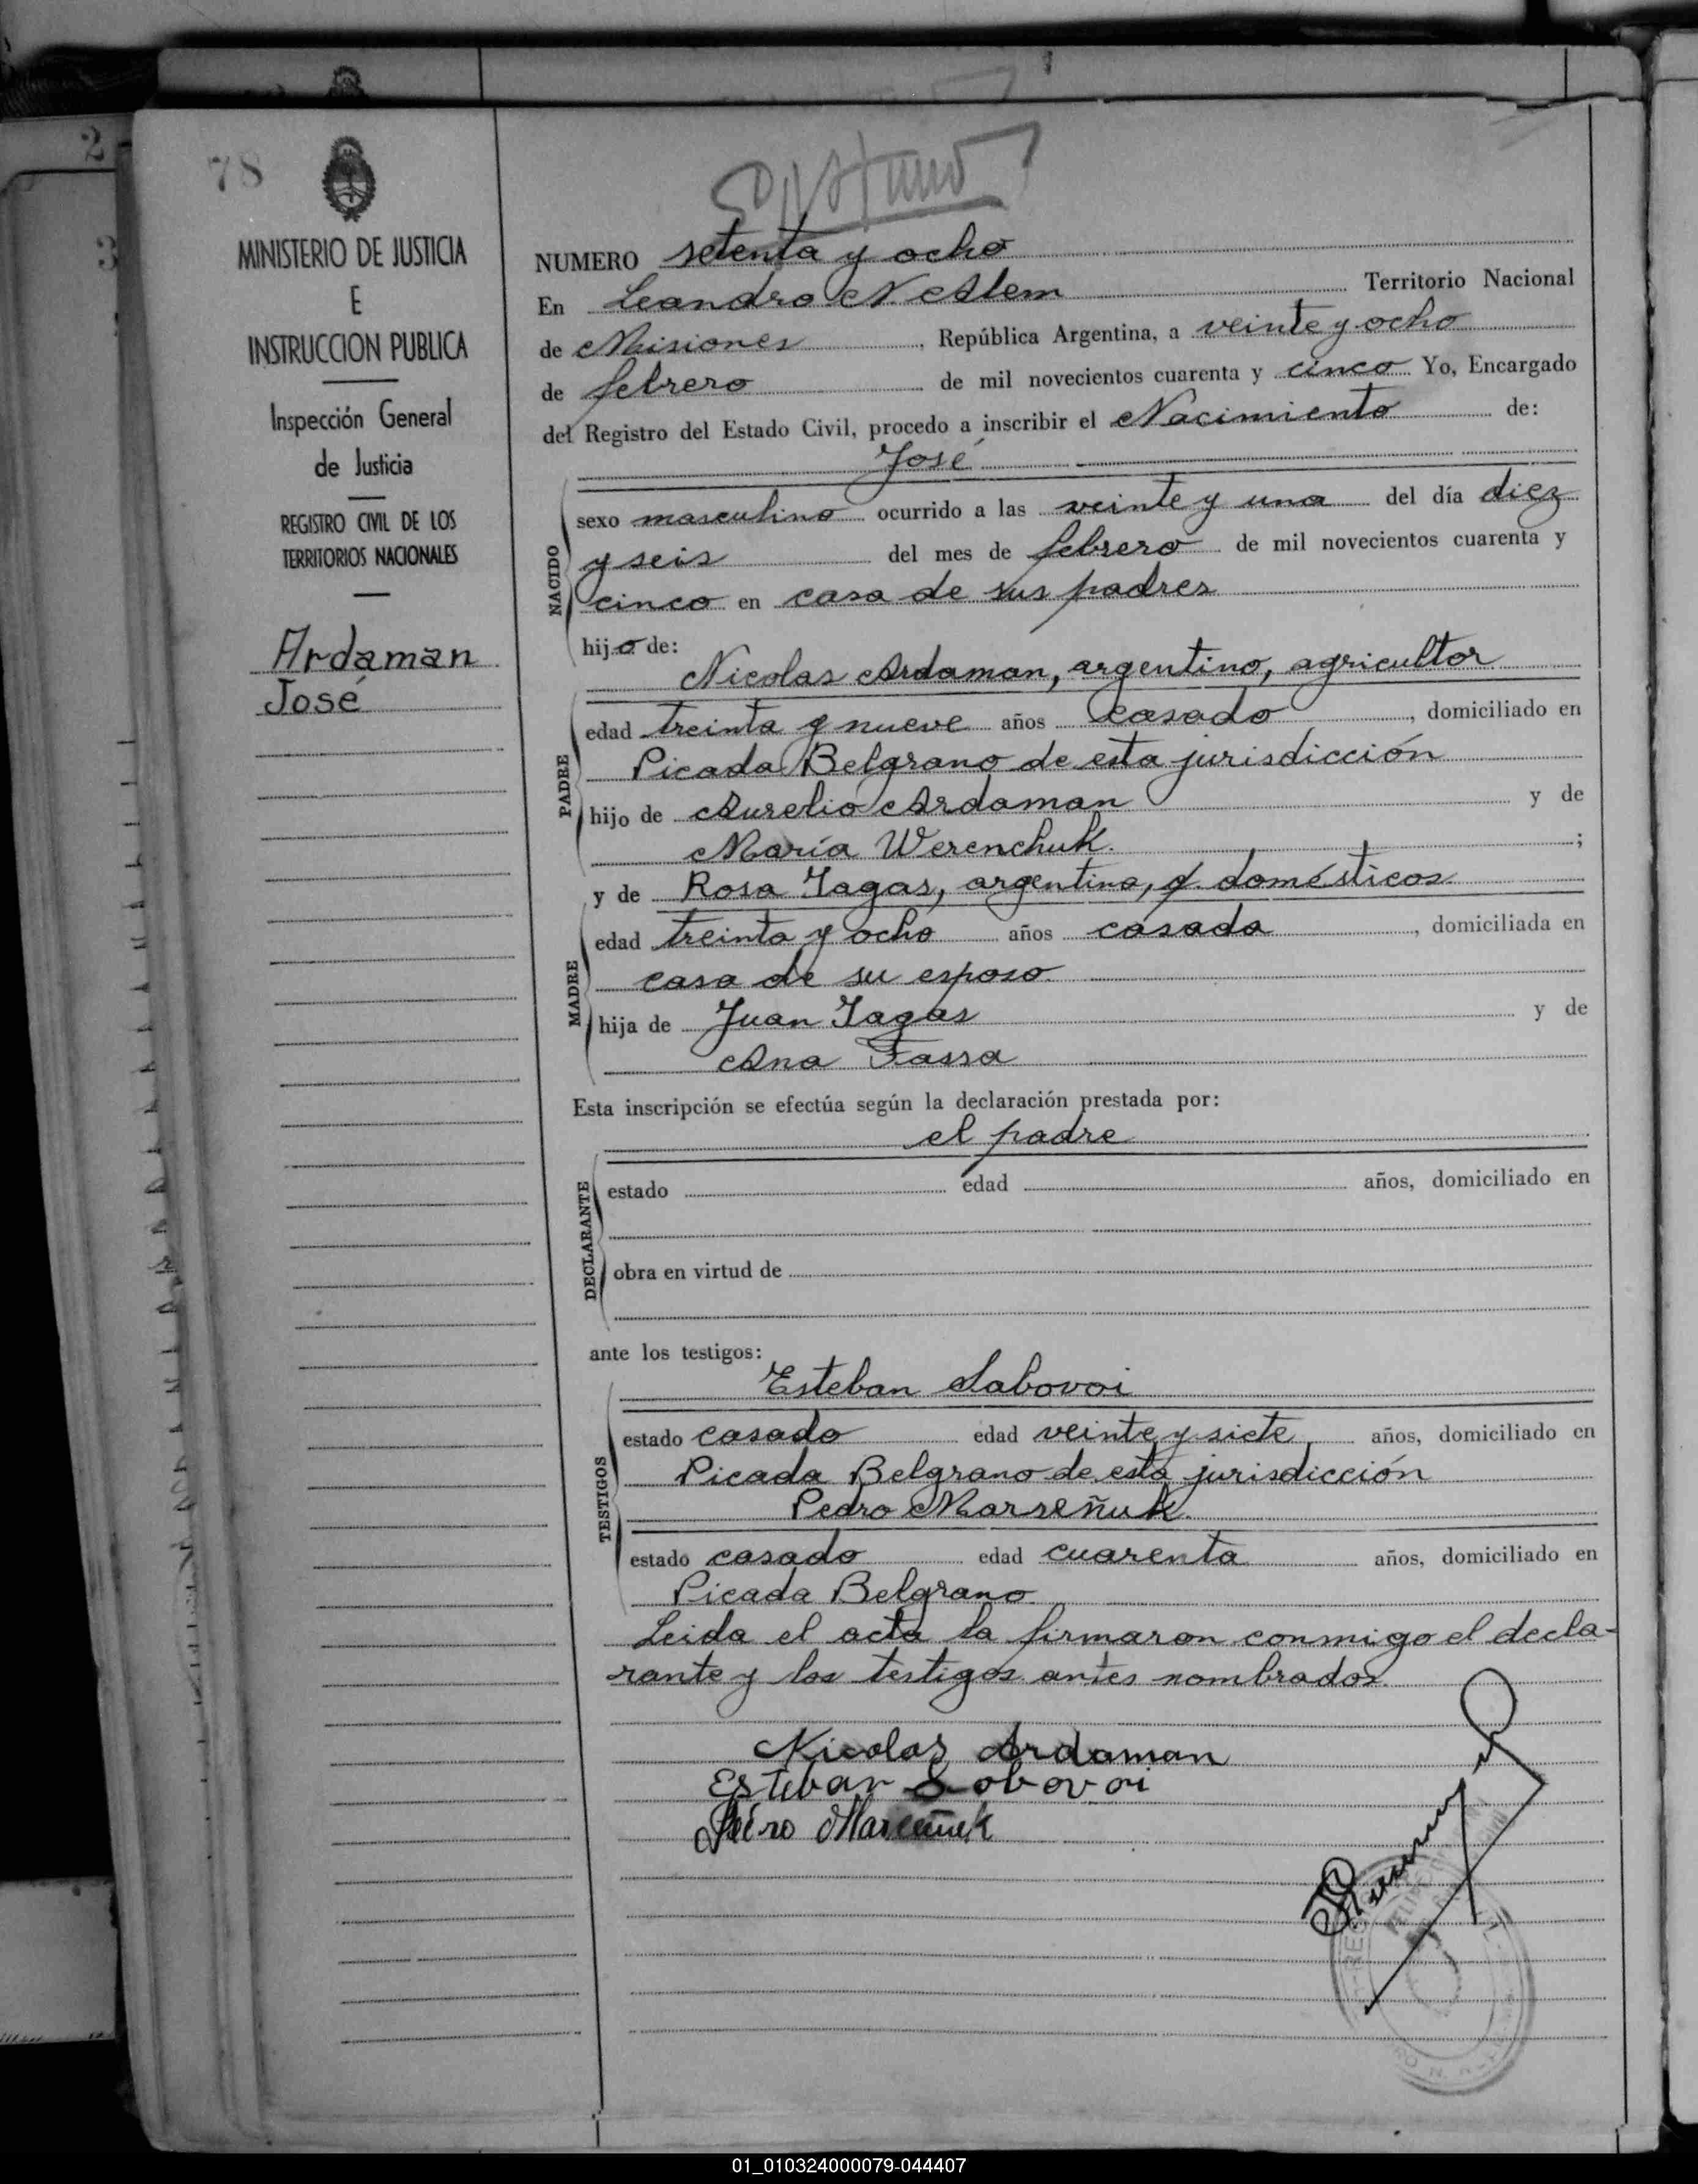 78
MINISTERIO DE JUSTICIA
E
INSTRUCCION PUBLICA
Inspección General
de Justicia
REGISTRO CIVIL DE LOS
TERRITORIOS NACIONALES
Ardaman
José
NUMERO setenta y ocho
En Leandro N Alem Territorio Nacional
de Misiones, República Argentina, a veinte y ocho
de febrero de mil novecientos cuarenta y cinco Yo, Encargado
del Registro del Estado Civil, procedo a inscribir el Nacimiento de:
José
NACIDO
sexo masculino ocurrido a las veinte y una del día diez
y seis del mes de febrero de mil novecientos cuarenta y
cinco en casa de sus padres
hijo de:
Nicolas Ardaman, argentino, agricultor
PADRE
edad treinta y nueve años casado, domiciliado en
Picada Belgrano de esta jurisdicción
hijo de Aurelio Ardaman y de
María Werenchuk.;
y de Rosa Jagas, argentina, q. domésticos
MADRE
edad treinta y ocho años casada, domiciliada en
casa de su esposo
hija de Juan Jagas y de
Ana Fassa
Esta inscripción se efectúa según la declaración prestada por:
el padre
DECLARANTE
estado edad años, domiciliado en
obra en virtud de
ante los testigos:
Esteban Sabovoi
TESTIGOS
estado casado edad veinte y siete, años, domiciliado en
Picada Belgrano de esta jurisdicción
Pedro Marseñuk.
estado casado edad cuarenta años, domiciliado en
Picada Belgrano
Leida el acta la firmaron conmigo el decla-
rante y los testigos antes nombrados.
Nicolas Ardaman
Esteban Sobovoi
01_010324000079-044407